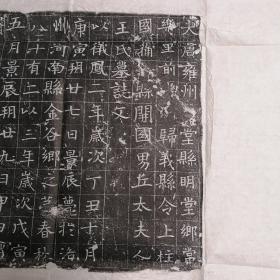 大唐雍州明堂縣明堂鄉
樂里前歸義縣令上柱
國縣開國男丘太夫人
王氏墓誌文
以儀鳳二年歲次丁丑十月
庚寅朔廿七日景辰薨於洛
州河南縣金谷鄉之春秋
八十有二以三年歲次戊寅
五月景辰朔廿九日甲申